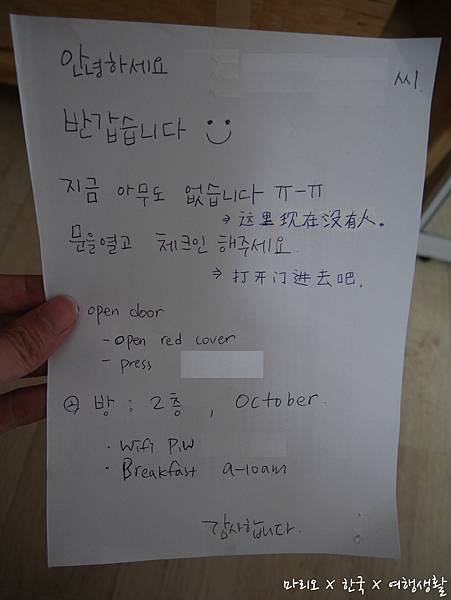 안녕하세요
씨.
반갑습니다
지금 아무도 없습니다 ㅠ-ㅠ
⇒ 这里现在没有人。
문을열고 체크인 해주세요.
⇒ 打开门进去吧.
open door
- open red cover
- press
② 방 : 2층 , October.
· Wifi P.W
· Breakfast 9-10am
감사합니다.
마리오 X 한국 X 여행생활